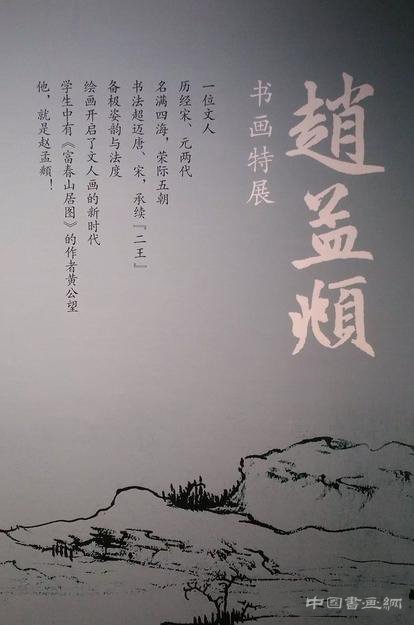 趙孟頫
书画特展
一位文人
历经宋、元两代
名满四海，荣际五朝
书法超迈唐、宋，承续『二王』
备极姿韵与法度
绘画开启了文人画的新时代
学生中有《富春山居图》的作者黄公望
他，就是赵孟頫！
中国書画網